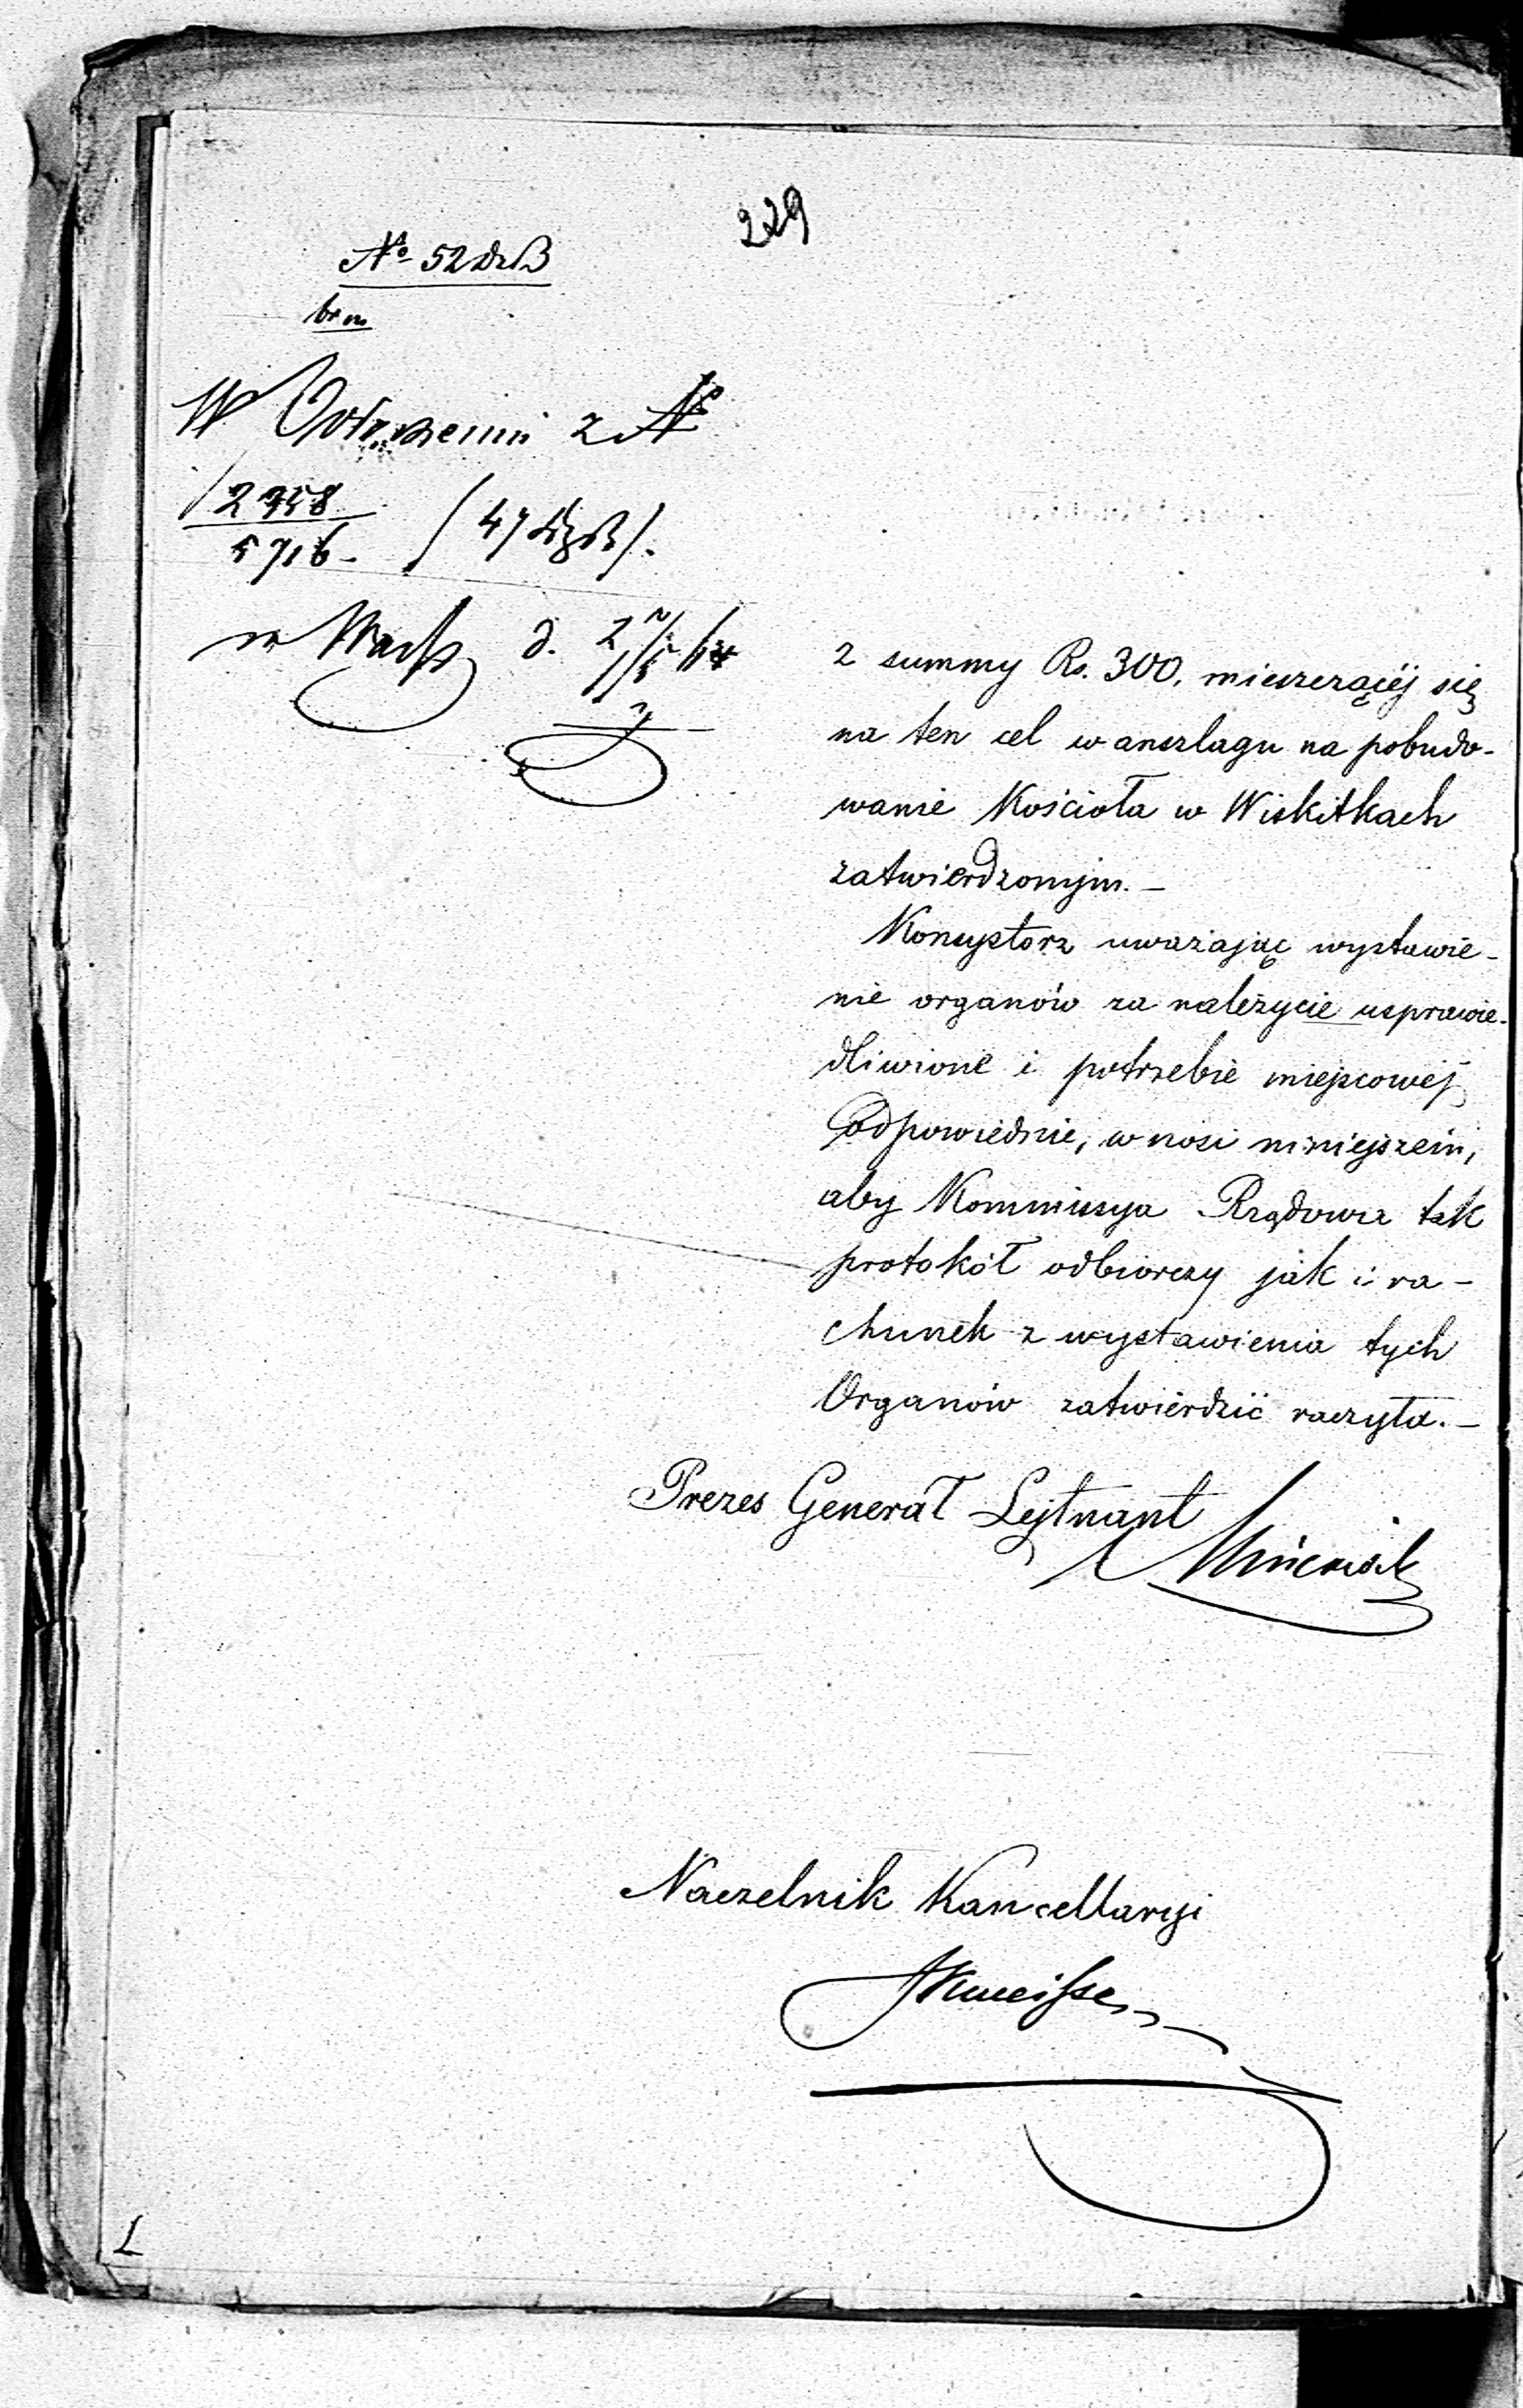 229
No 52
W z No
2758
5716
d.
z summy Rs. 300, mieszczącéj się
na ten cel w anszlagu na pobudo-
wanie Kościoła w Wiskitkach
zatwierdzonym. —
Konsystorz uważając wystawie-
nie organów za należycie usprawie-
dliwione i potrzebie miejscowéj
odpowiednie, wnosi niniejszem,
aby Kommissya Rządowa tak
protokół odbiorczy jak i ra-
chunek z wystawienia tych
Organów zatwierdzić raczyła. —
Prezes Generał Lejtnant
Naczelnik Kancellaryi